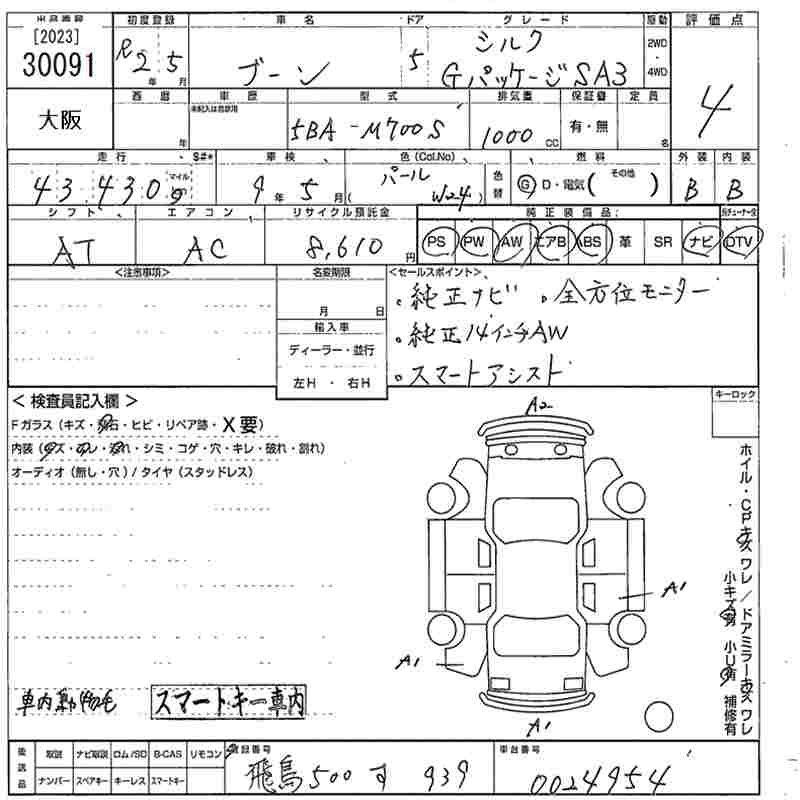 [2023]
30091
大阪
初度登録
R2年5月
車名
ブーン
ドア
5
グレード
シルク
Gパッケージ SA3
駆動
2WD
・
4WD
評価点
4
西暦
年
車歴
未記入は自家用
型式
5BA-M700S
排気量
1000 CC
保証書
有・無
定員
名
走行
S#*
43,430
マイル
車検
9年5月
色(Col.No)
パール
(W24)
色替
燃料
G D・電気( その他 )
外装
B
内装
B
シフト
AT
エアコン
AC
リサイクル預託金
8,610円
純正装備品
PS PW AW エアB ABS 革 SR ナビ DTV
<注意事項>
名変期限
月 日
輸入車
ディーラー・並行
左H・右H
<セールスポイント>
・純正ナビ ・全方位モニター
・純正14インチAW
・スマートアシスト
キーロック
<検査員記入欄>
Fガラス(キズ・飛石・ヒビ・リペア跡・X要)
内装(キズ・スレ・汚れ・シミ・コゲ・穴・キレ・破れ・割れ)
オーディオ(無し・穴)/タイヤ(スタッドレス)
A2
A1
A1
A1
ホイル・CPキズ ワレ/ドアミラーキズ ワレ
小キズ有 小U有 補修有
車内動物毛
スマートキー車内
後送品
取説 ナビ取説 ロム/SD B-CAS リモコン
ナンバー スペアキー キーレス スマートキー
登録番号
飛鳥500す939
車台番号
0024954